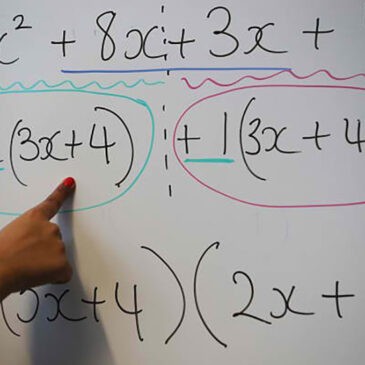 x² + 8x + 3x +
(3x+4) + 1(3x + 4
(3x+4)(2x +